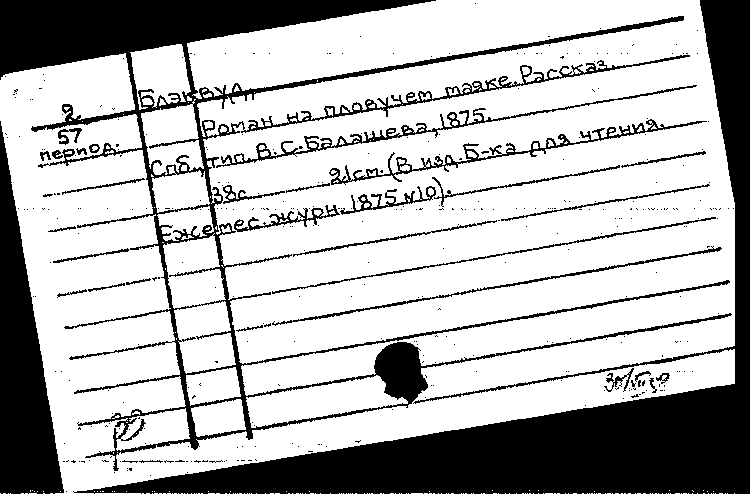 2
57
период:
Блэквуд,
Роман на пловучем маяке. Рассказ.
Спб., тип. В.С. Балашева, 1875.
38с 21см. (В изд. Б-ка для чтения.
Ежемес. журн. 1875 №10).